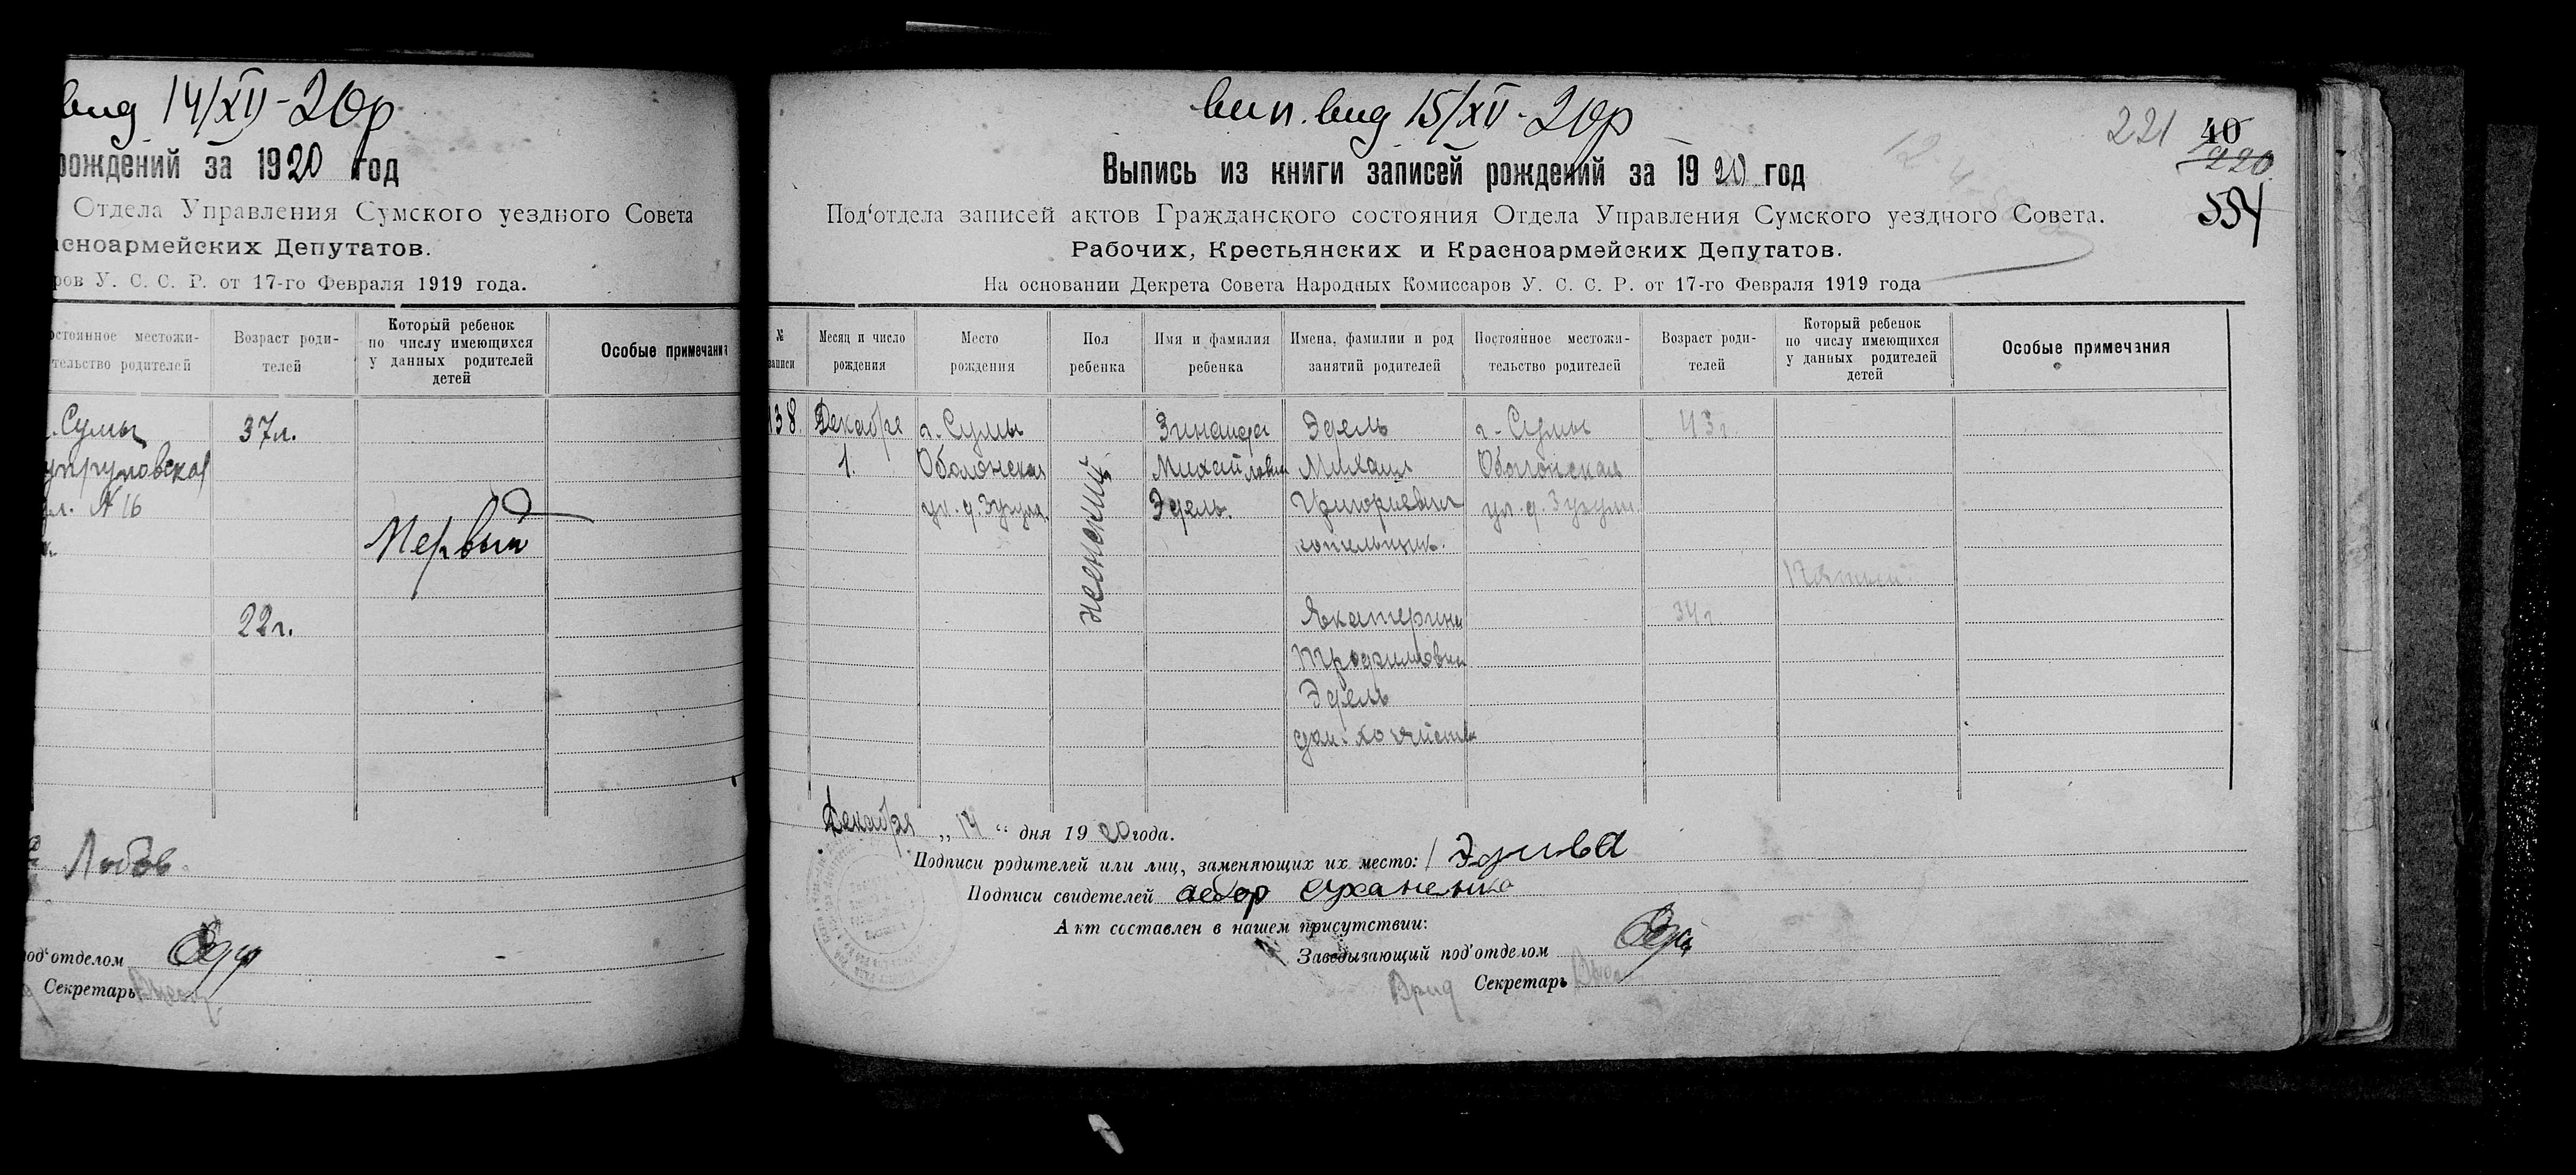 вид 14/XII-20р
рождений за 1920 год
Отдела Управления Сумского уездного Совета
асноармейских Депутатов.
ров У. С. С. Р. от 17-го Февраля 1919 года.
остоянное местожи-
тельство родителей
Возраст роди-
телей
Который ребенок
по числу имеющихся
у данных родителей
детей
Особые примечания
г. Сумы
ул. № 16
37л.
22г.
Первый
Любов
под'отделом
Секретарь
вип. вид 15/XII-20р
221
40
220
554
Выпись из книги записей рождений за 1920 год
Под'отдела записей актов Гражданского состояния Отдела Управления Сумского уездного Совета.
Рабочих, Крестьянских и Красноармейских Депутатов.
На основании Декрета Совета Народных Комиссаров У. С. С. Р. от 17-го Февраля 1919 года
№
записи
Месяц и число
рождения
Место
рождения
Пол
ребенка
Имя и фамилия
ребенка
Имена, фамилии и род
занятий родителей
Постоянное местожи-
тельство родителей
Возраст роди-
телей
Который ребенок
по числу имеющихся
у данных родителей
детей
Особые примечания
138.
Декабре
1.
г. Сумы
Оболонская
ул. д.
женский
Зинаида
Михайловна
Эдель.
Эдель
Михаил
Григориевич
котельщик.
Екатерина
Трофимовна
Эдель
дом. хозяйство
г. Сумы
Оболонская
ул. д.
43г.
34г
Пятый
Декабря „14“ дня 1920 года.
Подписи родителей или лиц, заменяющих их место:
Подписи свидетелей
Акт составлен в нашем присутствии:
Заведывающий под'отделом
Врид Секретарь